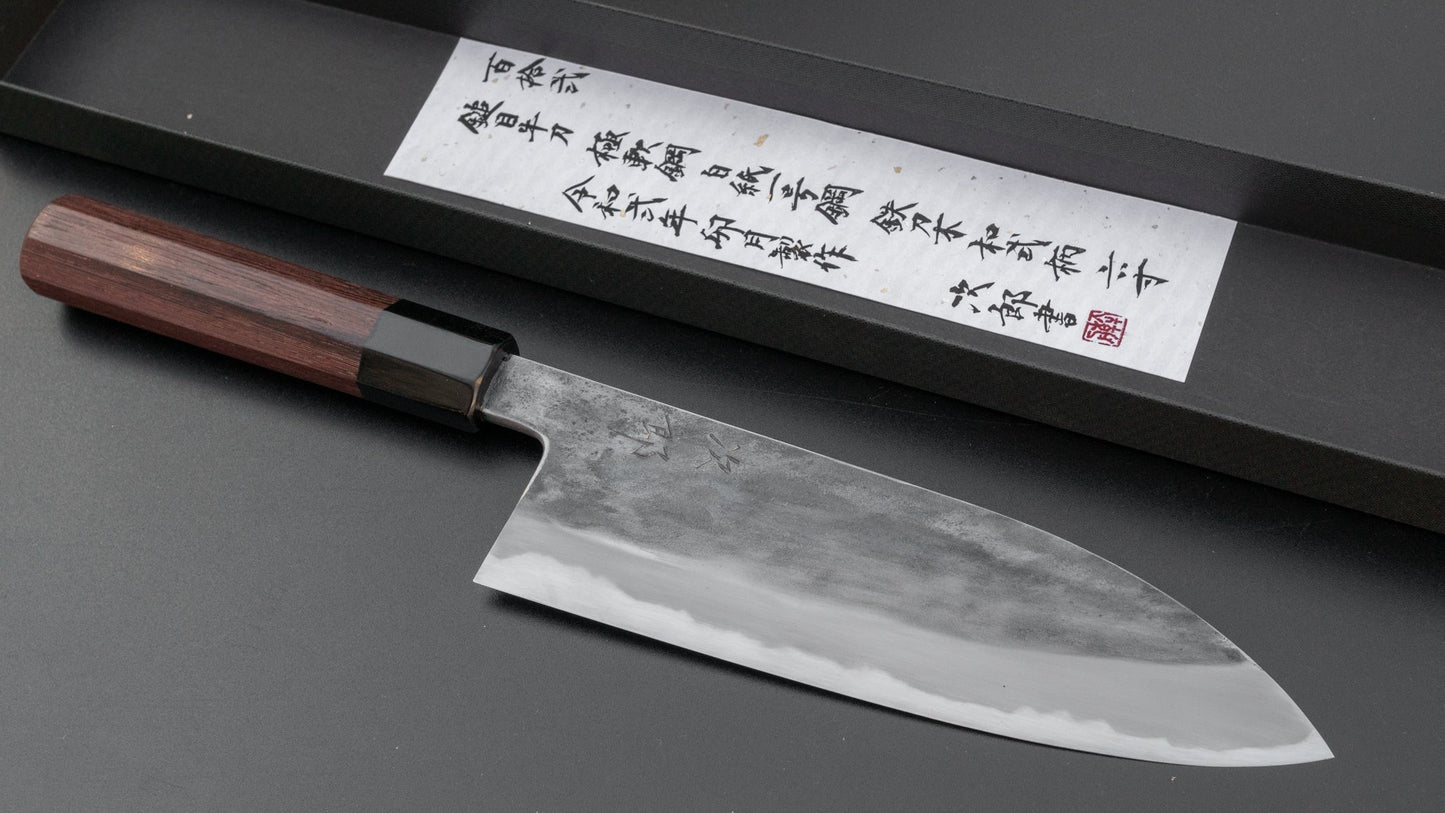 百拾弐
鎚目牛刀 極軟鋼 白紙一号鋼 鉄刀木 和式柄 六寸
令和弐年 卯月 製作
次郎書